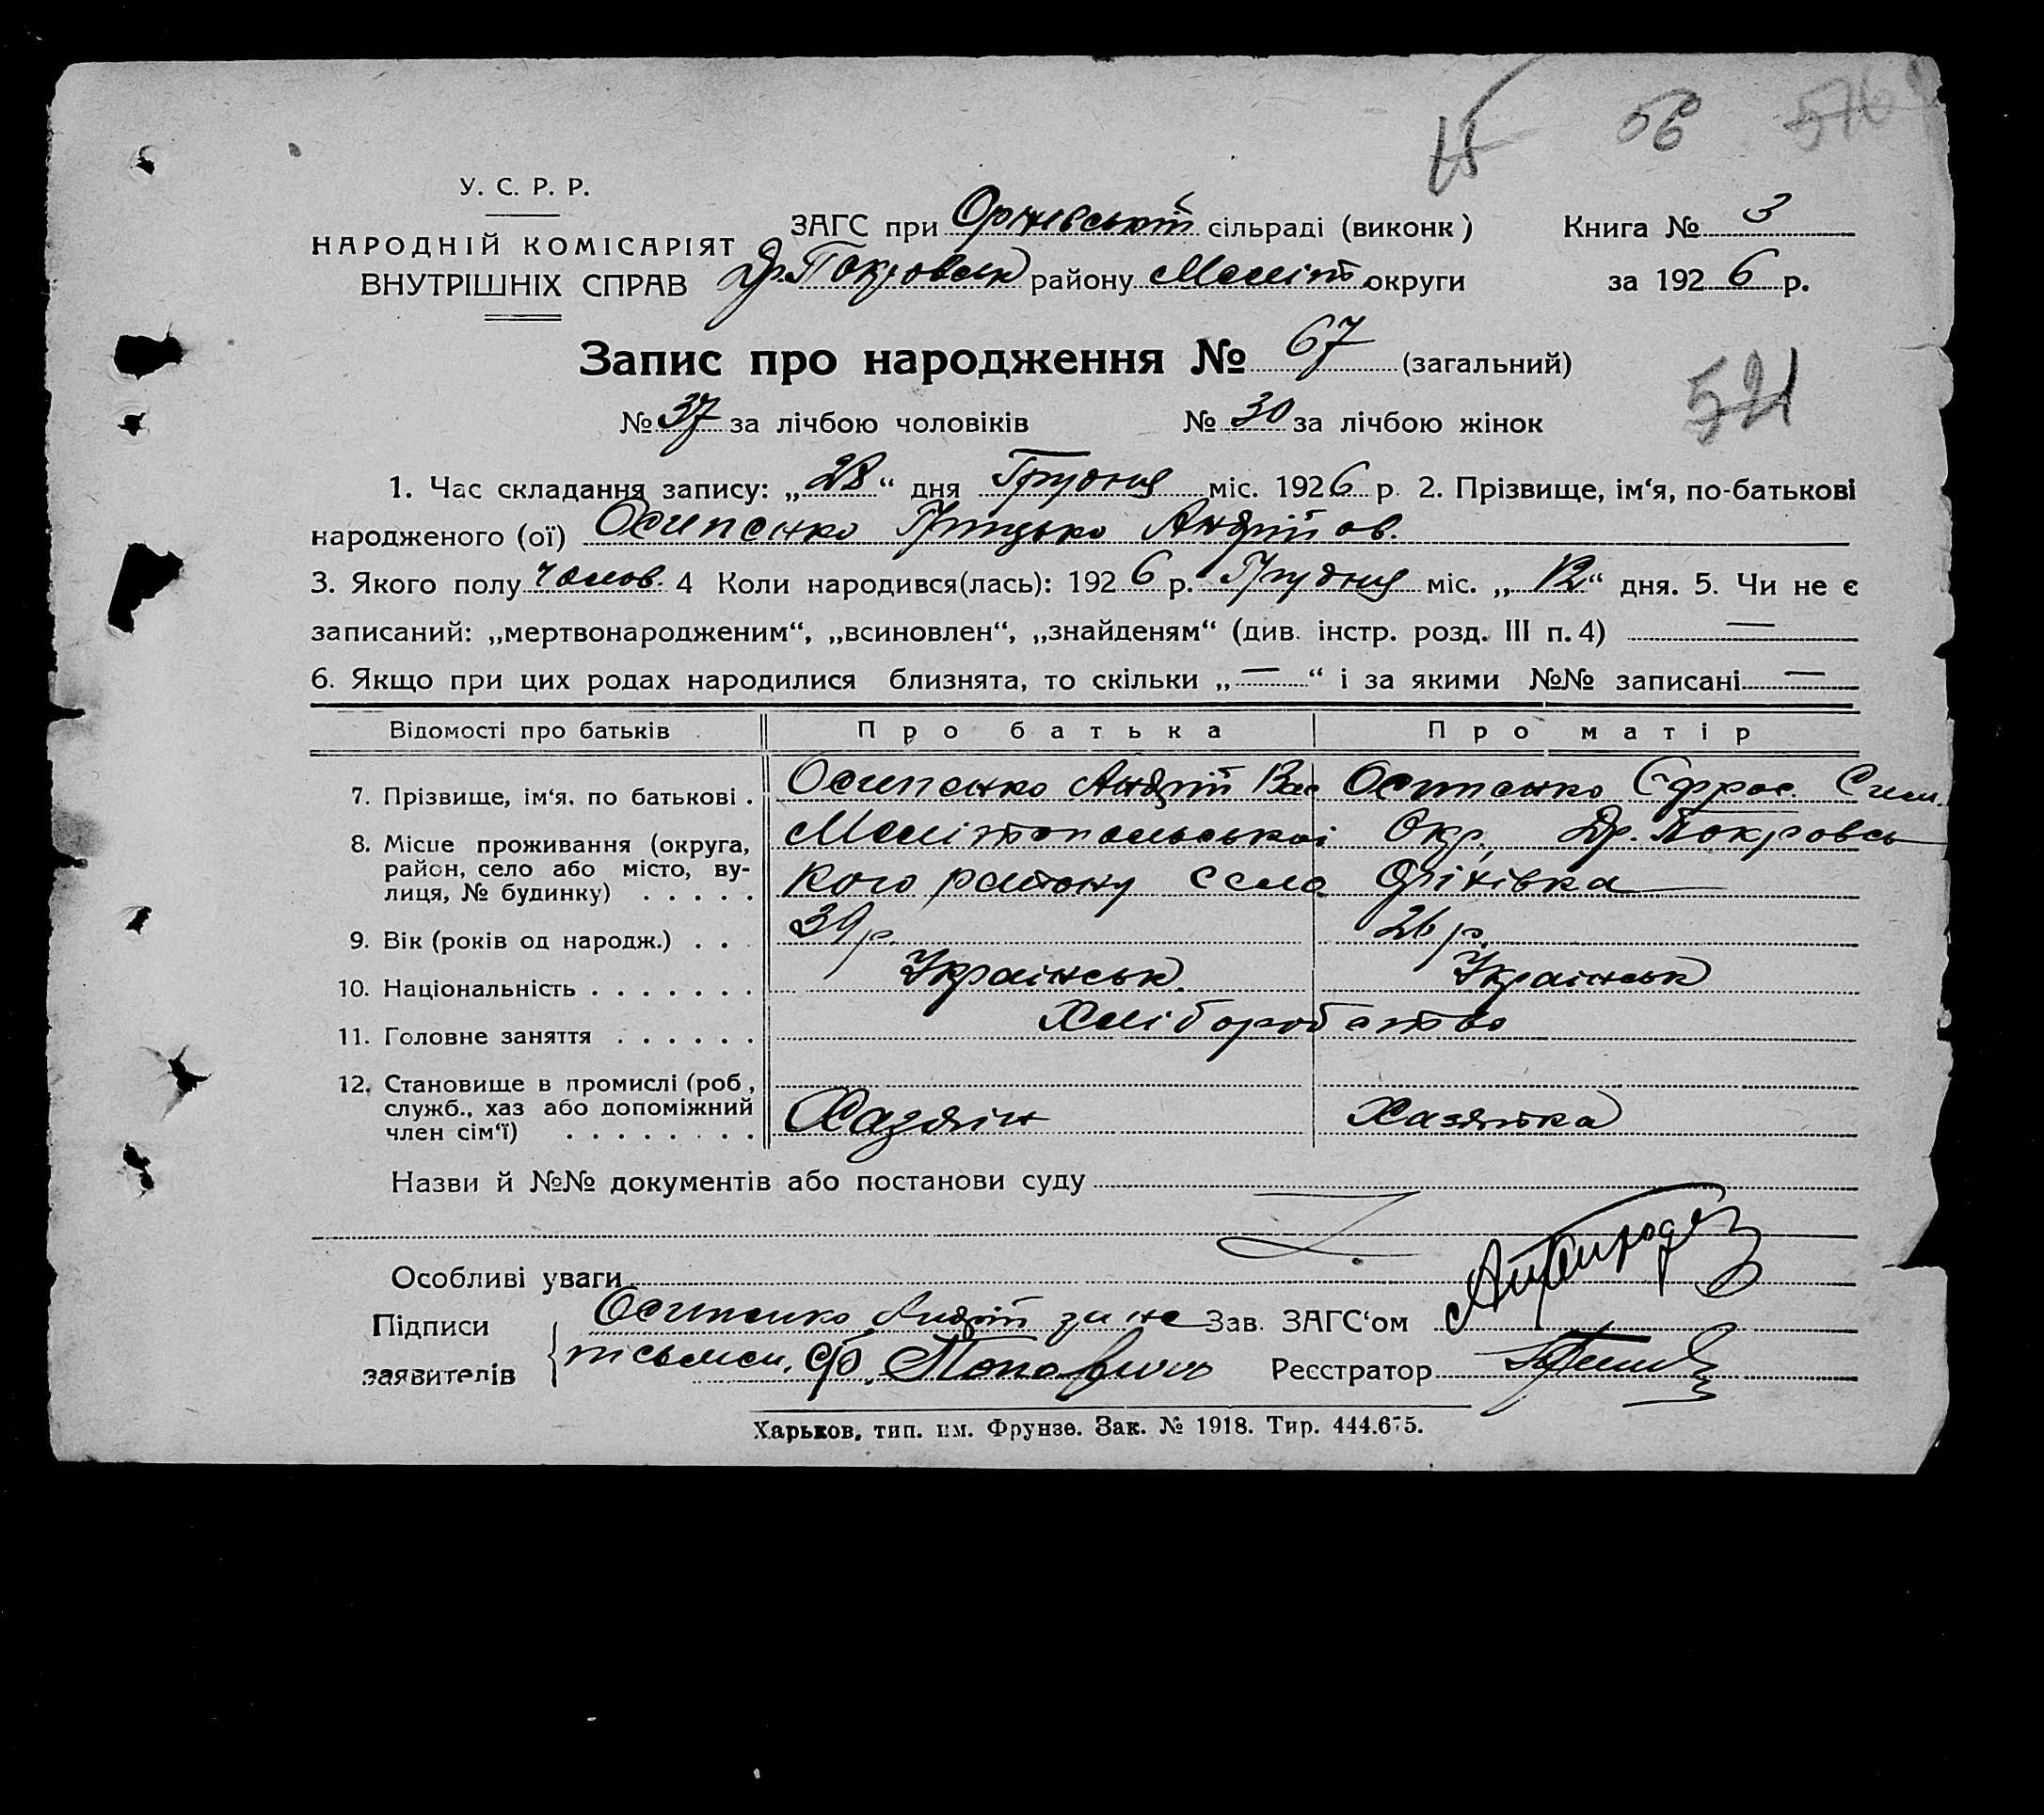 15 56 576
У. С. Р. Р.
НАРОДНІЙ КОМІСАРІЯТ
ВНУТРІШНІХ СПРАВ
ЗАГС при Орінівській сільраді (виконк) Книга № 3
Др. Покровськ району Меліт округи за 1926 р.
Запис про народження № 67 (загальний)
521
№ 37 за лічбою чоловіків № 30 за лічбою жінок
1. Час складання запису: „28“ дня Грудня міс. 1926 р. 2. Прізвище, ім‘я, по-батькові
народженого (ої) Осипенко Грицько Андрійов.
3. Якого полу чолов. 4 Коли народився(лась): 1926 р. Грудня міс. „12“ дня. 5. Чи не є
записаний: „мертвонародженим“, „всиновлен“, „знайденям“ (див. інстр. розд. III п. 4) —
6. Якщо при цих родах народилися близнята, то скільки „—“ і за якими №№ записані —
Відомості про батьків Про батька Про матір
7. Прізвище, ім‘я. по батькові . Осипенко Андрій Вас Осипенко Єфрос. Сим.
8. Місце проживання (округа, район, село або місто, вулиця, № будинку) . . . . . Мелітопольської Окр. Др. Покровсь
кого району село Орінівка
9. Вік (років од народж.) . . . 39 р. 26 р.
10. Національність . . . . . . . Українськ. Українськ
11. Головне заняття . . . . . . Хліборобство
12. Становище в промислі (роб, служб., хаз або допоміжний член сім‘ї) . . . . . . . . Хазяін Хазяйка
Назви й №№ документів або постанови суду
Особливі уваги
Підписи заявителів Осипенко Андрій за не Зав. ЗАГС‘ом
письмен. Ф. Попович Реєстратор
Харьков, тип. им. Фрунзе. Зак. № 1918. Тир. 444.675.